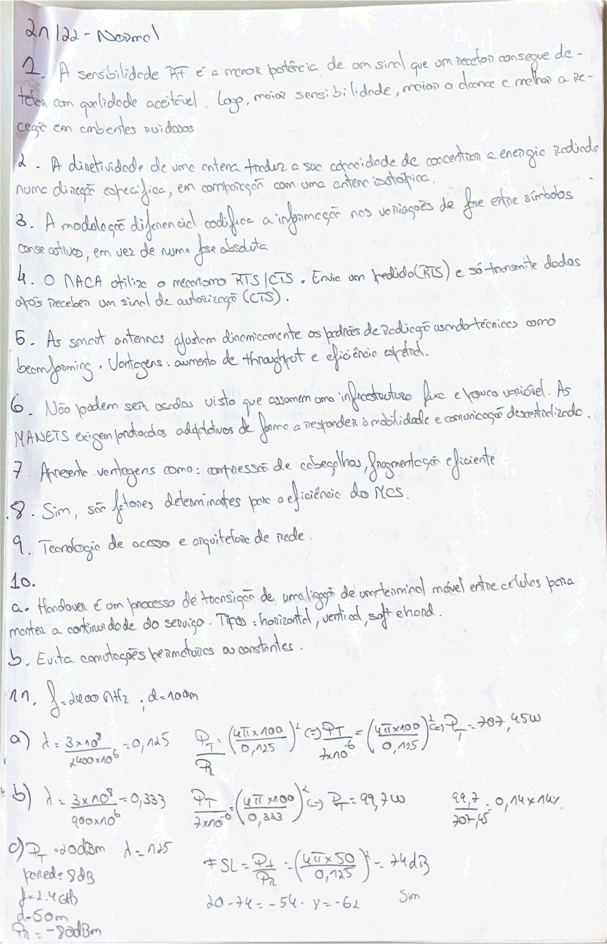 21/22 - Normal
1. A sensibilidade RF é a menor potência de um sinal que um recetor consegue de-
tetar com qualidade aceitável. Logo, maior sensibilidade, maior o alcance e melhor a re-
ceção em ambientes ruidosos
2 - A diretividade de uma antena traduz a sua capacidade de concentrar a energia radiada
numa direção específica, em comparação com uma antena isotrópica.
3. A modulação diferencial codifica a informação nas variações de fase entre símbolos
consecutivos, em vez de numa fase absoluta.
4. O MACA utiliza o mecanismo RTS/CTS. Envia um pedido (RTS) e só transmite dados
após receber um sinal de autorização (CTS).
5. As smart antennas ajustam dinamicamente os padrões de radiação usando técnicas como
beamforming. Vantagens: aumento de throughput e eficiência espetral.
6. Não podem ser usados visto que assumem uma infraestrutura fixa e pouco variável. As
MANETS exigem protocolos adaptativos de forma a responder à mobilidade e comunicação descentralizada.
7. Apresenta vantagens como: compressão de cabeçalhos, fragmentação eficiente
8. Sim, são fatores determinantes para a eficiência do MCS.
9. Tecnologia de acesso e arquitetura de rede.
10.
a. Handover é um processo de transição de uma ligação de um terminal móvel entre células para
manter a continuidade do serviço. Tipos: horizontal, vertical, soft e hard.
b. Evita comutações prematuras ou constantes.
11. f=2400 MHz ; d=100m
a) λ = 3×10⁸/2400×10⁶ = 0,125 PT/PR = (4π×100/0,125)² (=) PT/7×10⁻⁶ = (4π×100/0,125)² (=) PT = 707,45W
b) λ = 3×10⁸/900×10⁶ = 0,333 PT/7×10⁻⁶ = (4π×100/0,333)² (=) PT = 99,7W 99,7/707,45 = 0,14×14%
c) PT = 20dBm λ = 125
parede = 8dB FSL = PT/PR = (4π×50/0,125)² = 74dB
f=2.4GHz 20-74 = -54 - 8 = -62 Sim
d=50m
PR = -80dBm